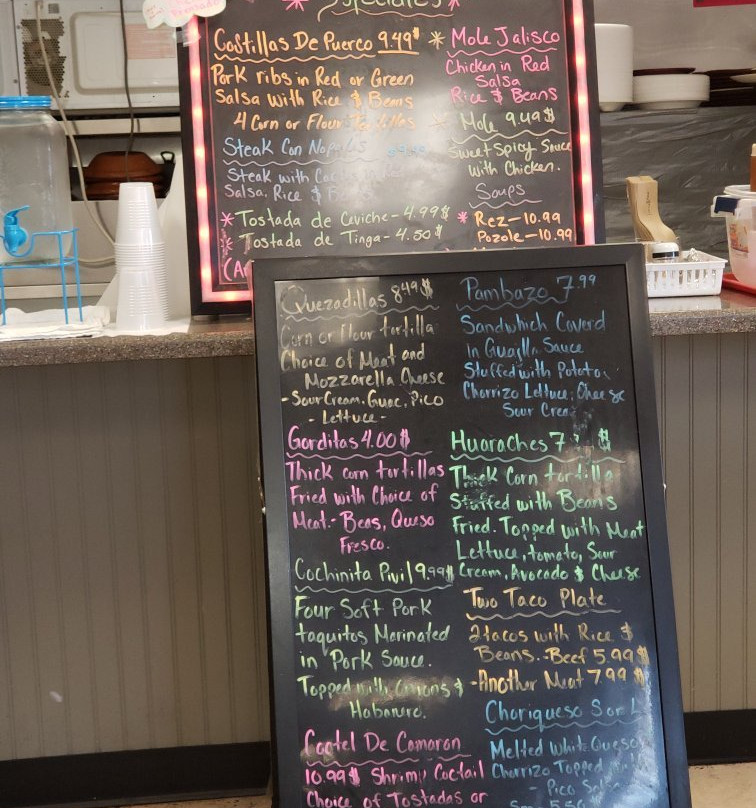 Costillas De Puerco 9.49$
Pork ribs in Red or Green
Salsa with Rice & Beans
4 Corn or Flour
Steak Con
Steak with
Salsa, Rice &
* Tostada de Ceviche - 4.99$
* Tostada de Tinga - 4.50$
* Mole Jalisco
Chicken in Red
Salsa
Rice & Beans
Mole 9.49$
Sweet Spicy Sauce
with Chicken.
Soups
* Rez - 10.99
Pozole - 10.99
Quezadillas 8.49$
Corn or flour tortilla
Choice of Meat and
Mozzarella Cheese
- Sour Cream. Guac, Pico
- Lettuce -
Gorditas 4.00$
Thick corn tortillas
Fried with Choice of
Meat.- Beas, Queso
Fresco.
Cochinita Pivil 9.99$
Four Soft Pork
taquitos Marinated
in Pork Sauce.
Topped with Onions &
Habanero.
Coctel De Camaron
10.99$ Shrimp Coctail
Choice of Tostadas or
Pambazo 7.99
Sandwhich Coverd
in Sauce
Stuffed with Potato,
Chorrizo Lettuce, Cheese
Sour
Huaraches 7
Thick Corn
Stuffed with Beans
Fried. Topped with Meat
Lettuce, tomato, Sour
Cream, Avocado & Cheese
Two Taco Plate
2 tacos with Rice &
Beans.-Beef 5.99$
-Another Meat 7.99$
Choriqueso
Melted White Queso
Chorizo Topped
- Pico